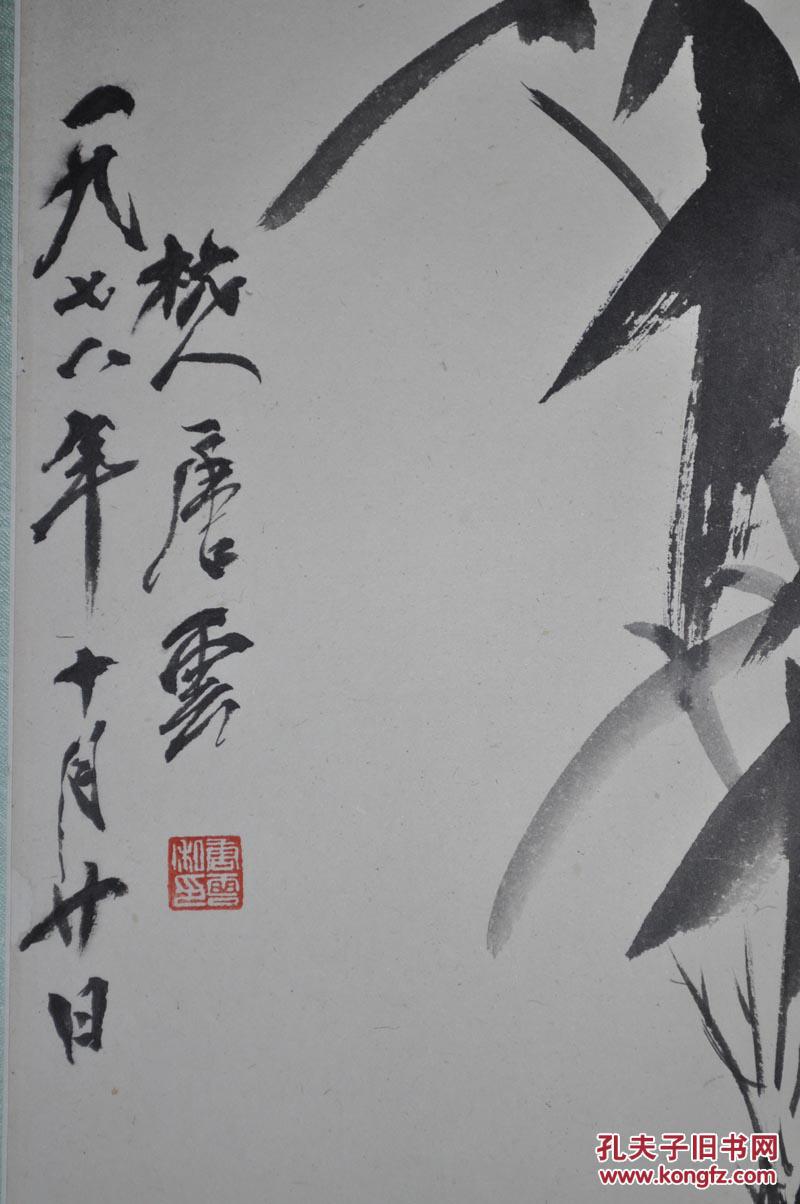 杭人唐雲
一九七八年十月廿日
唐雲
私印
孔夫子旧书网
www.kongfz.com